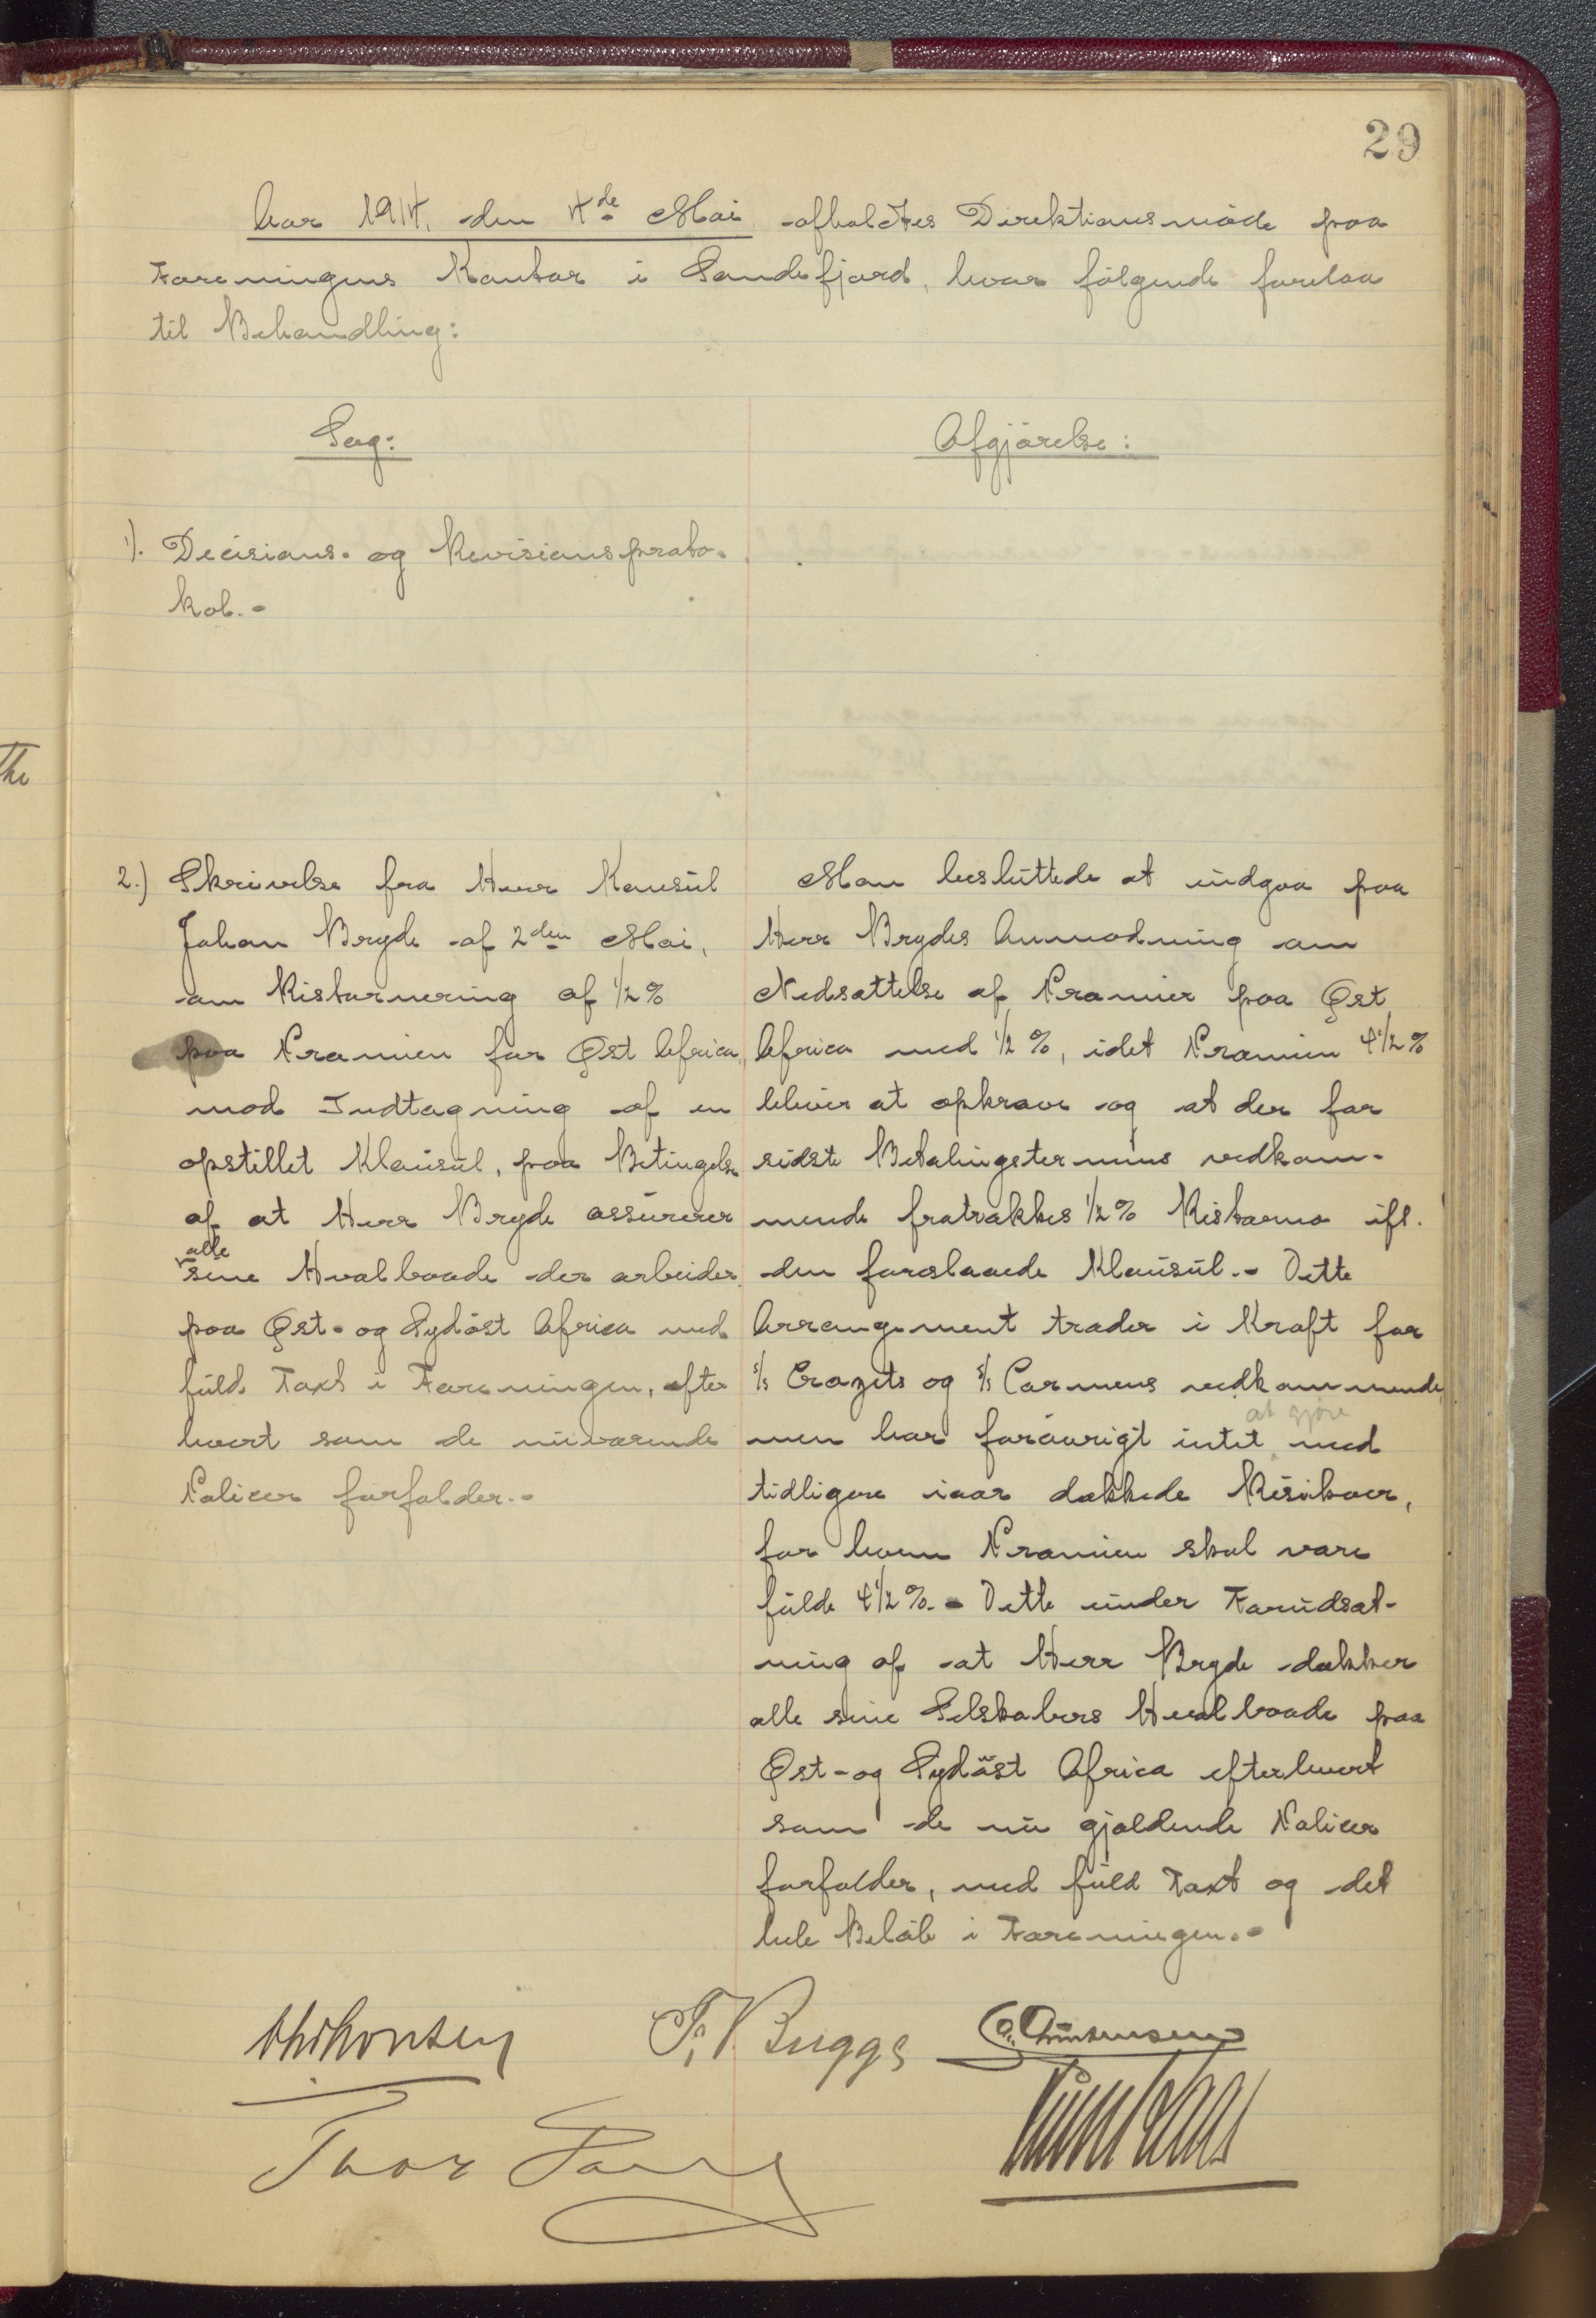 29
Aar 1914, den 4de Mai afholdtes Direktionsmøde paa
Foreningens Kontor i Sandefjord, hvor følgende forelaa
til Behandling:
Sag:
Afgjørelse:
1). Decisions- og Revisionsproto-
kol.-
2.) Skrivelse fra Herr Konsul
Johan Bryde af 2den Mai,
om Ristornering af 1/2 %
paa Præmien for Øst Africa,
mod Indtagning af en
opstillet Klausul, paa Betingelse
af at Herr Bryde assurerer
alle
sine Hvalbaade der arbeider
paa Øst- og Sydøst Africa med
fuld Taxt i Foreningen, efter
hvert som de nuværende
Policer forfalder.-
Man besluttede at indgaa paa
Herr Brydes Anmodning om
Nedsættelse af Præmier paa Øst
Africa med 1/2 %, idet Præmien 4 1/2 %
bliver at opkræve og at der for
sidste Betalingstermins vedkom-
mende fratrækkes 1/2 % Ristorno ifl.
den foreslaaede Klausul.- Dette
Arrangement træder i Kraft for
s/s Crozets og s/s Carmens vedkommende,
at gjøre
men har forøvrigt intet med
tidligere iaar dækkede Risikoer,
for hvem Præmien skal være
fulde 4 1/2 %.- Dette under Forudsæt-
ning af at Herr Bryde dækker
alle sine Selskabers Hvalbaade paa
Øst- og Sydøst Africa efterhvert
som de nu gjældende Policer
forfalder, med fuld Taxt og det
hele Beløb i Foreningen.-
Bugge
Thor Dahl
The